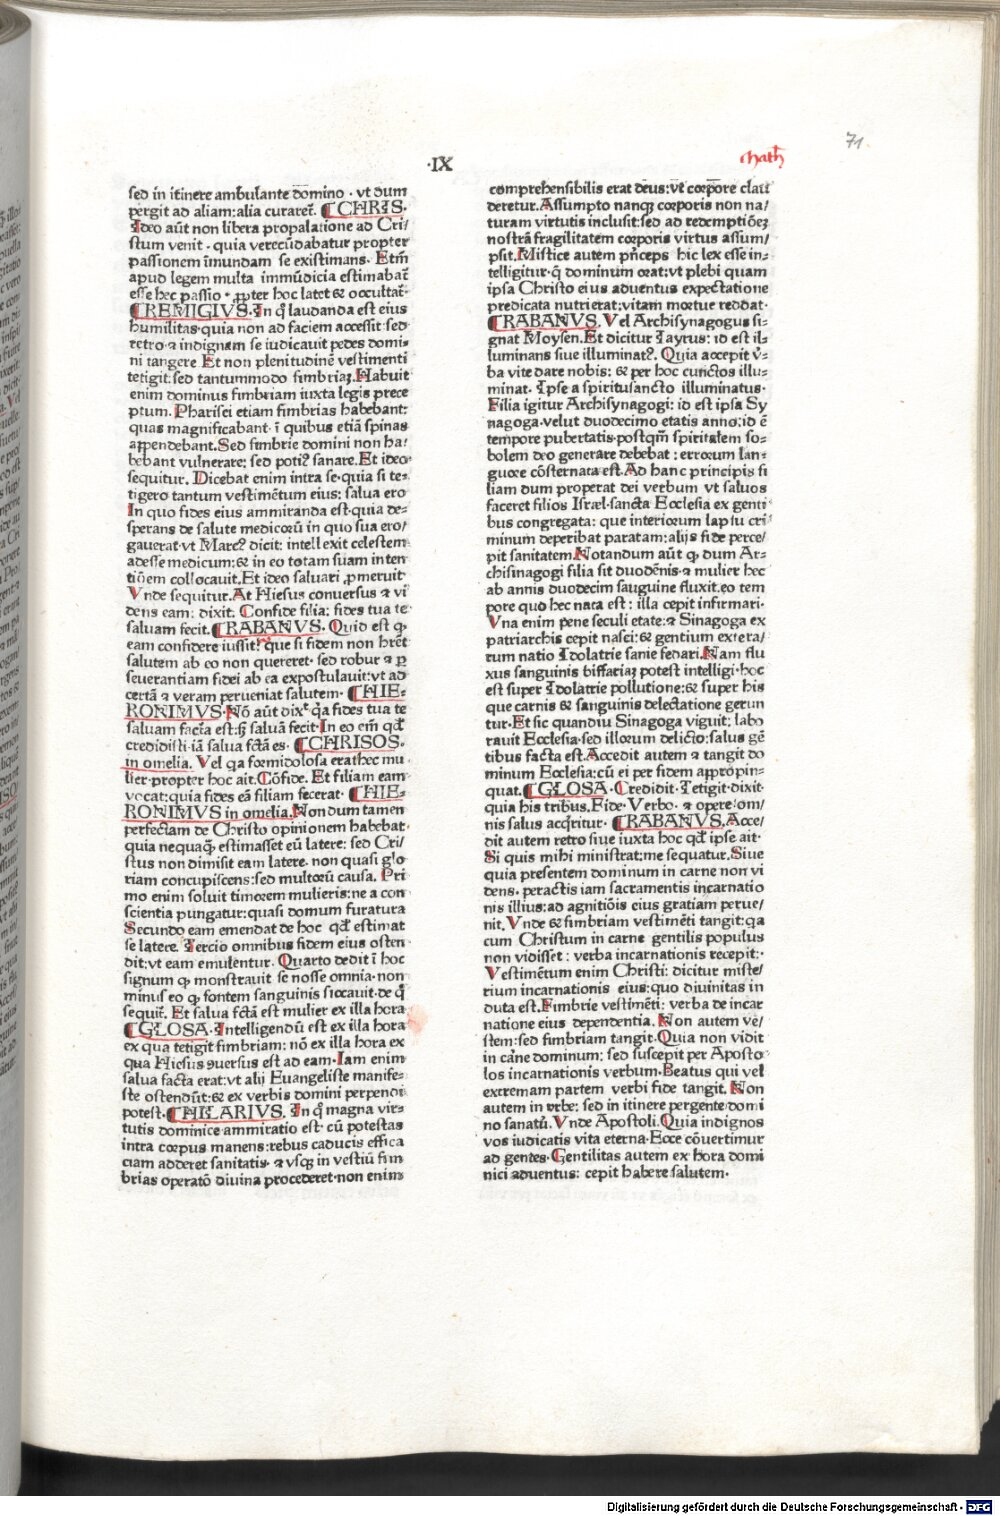 71
·IX
Math
sed in itinere ambulante domino · vt dum
pergit ad aliam: alia curaret̃. ¶CHRIS·
Ideo aũt non libera propalatione ad Cri/
stum venit · quia verecũdabatur propter
passionem ĩmundam se existimans. Etm̃
apud legem multa immũdicia estimabat̃
esse hec passio · ꝓpter hoc latet & occultat̃·
¶REMIGIVS. In q̃ laudanda est eius
humilitas · quia non ad faciem accessit: sed
retro · ⁊ indignam se iudicauit pedes domi⸗
ni tangere Et non plenitudinẽ vestimenti
tetigit: sed tantummodo fimbriaꝝ. Habuit
enim dominus fimbriam iuxta legis prece
ptum. Pharisei etiam fimbrias habebant:
quas magnificabant · ĩ quibus etiã spinas
appendebant. Sed fimbrie domini non ha⸗
bebant vulnerare: sed poti᷒ sanare. Et ideo
sequitur. Dicebat enim intra se · quia si te⸗
tigero tantum vestimẽtum eius: salua ero
In quo fides eius ammiranda est · quia de⸗
sperans de salute medicorũ in quo sua ero/
gauerat · vt Marc᷒ dicit: intellexit celestem
adesse medicum: & in eo totam suam inten
tiõem collocauit. Et ideo saluari ꝓmeruit
Vnde sequitur. At Hiesus conuersus ⁊ vi
dens eam: dixit. Confide filia: fides tua te
saluam fecit. ¶RABANVS. Quid est ꝙ
eam confidere iussit: que si fidem non hr̃et
salutem ab eo non quereret · sed robur ⁊ ꝑ
seuerantiam fidei ab ea expostulauit: vt ad
certã ⁊ veram perueniat salutem · ¶HIE⸗
RONIMVS · Nõ aũt dix᷑ · q̃a fides tua te
saluam facta est: sꝫ saluã fecit · In eo em̃ qđ
credidisti · iã salua fctã es · ¶CHRISOS.
in omelia. Vel qa formidolosa erat hec mu
lier · propter hoc ait. Cõfide. Et filiam eam
vocat: quia fides eã filiam fecerat · ¶HIE⸗
RONIMVS in omelia. Nondum tamen
perfectam de Christo opinionem habebat·
quia nequaq̃ estimasset eũ latere: sed Cri/
stus non dimisit eam latere · non quasi glo
riam concupiscens: sed multorũ causa. Pri
mo enim soluit timorem mulieris: ne a con
scientia pungatur: quasi domum furatura
Secundo eam emendat de hoc qđ estimat
se latere. Tercio omnibus fidem eius osten
dit: vt eam emulentur. Quarto dedit ĩ hoc
signum ꝙ monstrauit se nosse omnia · non
minus eo ꝙ fontem sanguinis siccauit · de q̃
sequit᷑. Et salua fctã est mulier ex illa hora
¶GLOSA. Intelligendũ est ex illa hora
ex qua tetigit fimbriam: nõ ex illa hora ex
qua Hiesus ꝯuersus est ad eam · Iam enim
salua facta erat: vt alij Euangeliste manife⸗
ste ostendũt: & ex verbis domini perpendi
potest. ¶HILARIVS. In q̃ magna vir⸗
tutis dominice ammiratio est · cũ potestas
intra corpus manens: rebus caducis effica
ciam adderet sanitatis · ⁊ vsqꝫ in vestiũ fim
brias operatõ diuina procederet · non enim
comprehensibilis erat deus: vt corpore clau
deretur. Assumpto nanqꝫ corporis non na/
turam virtutis inclusit: sed ad redemptiõeꝫ
nostrã fragilitatem corporis virtus assum/
psit. Mistice autem pñceps hic lex esse in⸗
telligitur · q̃ dominum orat: vt plebi quam
ipsa Christo eius aduentus expectatione
predicata nutrierat: vitam mortue reddat·
¶RABANVS. Vel Archisynagogus si⸗
gnat Moysen. Et dicitur Iayrus: id est il⸗
luminans siue illuminat᷒. Quia accepit v̾⸗
ba vite dare nobis: & per hoc cunctos illu⸗
minat. Ipse a spiritusancto illuminatus·
Filia igitur Archisynagogi: id est ipsa Sy
nagoga · velut duodecimo etatis anno: id ẽ
tempore pubertatis · postqm̃ spiritalem so⸗
bolem deo generare debebat: errorum lan⸗
guore cõsternata est. Ad hanc principis fi
liam dum properat dei verbum vt saluos
faceret filios Israel · sancta Ecclesia ex genti
bus congregata: que interiorum lapsu cri⸗
minum deperibat paratam: alijs fide perce/
pit sanitatem. Notandum aũt ꝙ dum Ar⸗
chisinagogi filia sit duodẽnis · ⁊ mulier hec
ab annis duodecim sanguine fluxit · eo tem
pore quo hec nata est: illa cepit infirmari·
Vna enim pene seculi etate: ⁊ Sinagoga ex
patriarchis cepit nasci: & gentium extera/
rum natio Idolatrie sanie fedari. Nam flu
xus sanguinis biffariaꝫ potest intelligi · hoc
est super Idolatrie pollutione: & super his
que carnis & sanguinis delectatione gerun
tur. Et sic quandiu Sinagoga viguit: labo
rauit Ecclesia · sed illorum delicto: salus gẽ
tibus facta est. Accedit autem ⁊ tangit do
minum Ecclesia: cũ ei per fidem appropin⸗
quat. ¶GLOSA · Credidit · Tetigit · dixit·
quia his tribus. Fide · Verbo · ⁊ opere om/
nis salus acq̃ritur · ¶RABANVS. Acce/
dit autem retro siue iuxta hoc qđ ipse ait·
Si quis mihi ministrat: me sequatur. Siue
quia presentem dominum in carne non vi
dens · peractis iam sacramentis incarnatio
nis illius: ad agnitiõis eius gratiam perue/
nit. Vnde & fimbriam vestimẽti tangit: qa
cum Christum in carne gentilis populus
non vidisset: verba incarnationis recepit:·
Vestimẽtum enim Christi: dicitur miste/
rium incarnationis eius: quo diuinitas in
duta est. Fimbrie vestimẽti: verba de incar
natione eius dependentia. Non autem ve/
stem: sed fimbriam tangit · Quia non vidit
in carne dominum: sed suscepit per Aposto⸗
los incarnationis verbum. Beatus qui vel
extremam partem verbi fide tangit. Non
autem in vrbe: sed in itinere pergente domi
no sanatũ. Vnde Apostoli. Quia indignos
vos iudicatis vita eterna · Ecce cõuertimur
ad gentes · Gentilitas autem ex hora domi
nici aduentus: cepit habere salutem·
Digitalisierung gefördert durch die Deutsche Forschungsgemeinschaft · DFG